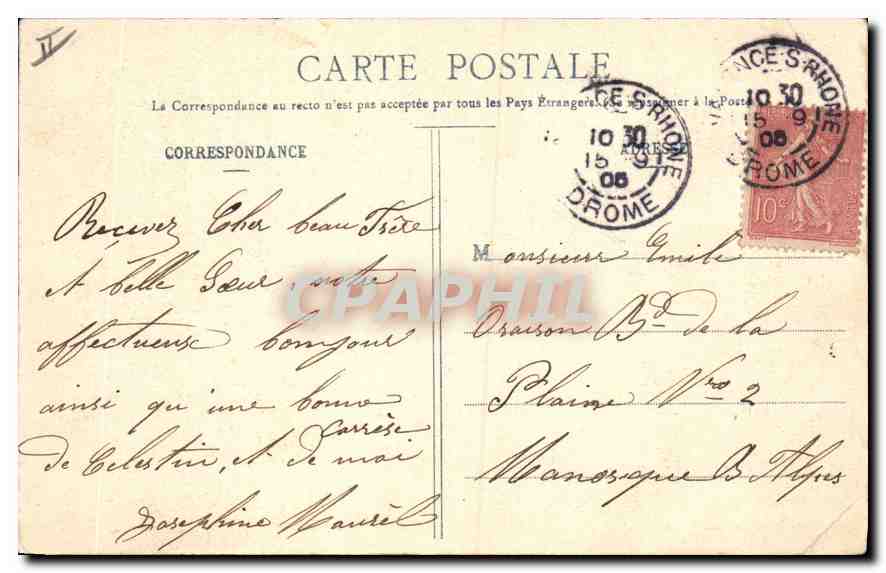 II
CARTE POSTALE
La Correspondance au recto n'est pas acceptée par tous les Pays Étrangers. (Se renseigner à la Poste
CORRESPONDANCE
ADRESSE
NCE-S-RHONE
10 30
15 9
06
DROME
ENCE-S-RHONE
10 30
15 9
06
DROME
10c
Recevez Cher beau Frère
et belle Sœur, notre
affectueuse bonjour
ainsi qu'une bonne
carresse
de Celestin, et de moi
Josephine Maurel
Monsieur Emile
Oraison Bd de la
Plaine Nro 2
Manosque Bs Alpes
CPAPHIL